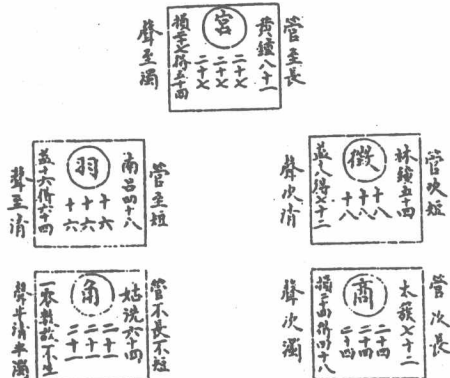 管至長
黃鐘八十一
宮
二十七
二十七
二十七
損二十七得五十四
聲至濁
管次短
林鐘五十四
徵
十八
十八
十八
益十八得七十二
聲次清
管次長
太蔟七十二
商
二十四
二十四
二十四
損二十四得四十八
聲次濁
管至短
南呂四十八
羽
十六
十六
十六
益十六得六十四
聲至清
管不長不短
姑洗六十四
角
二十一
二十一
二十一
一零數數不生
聲半清半濁